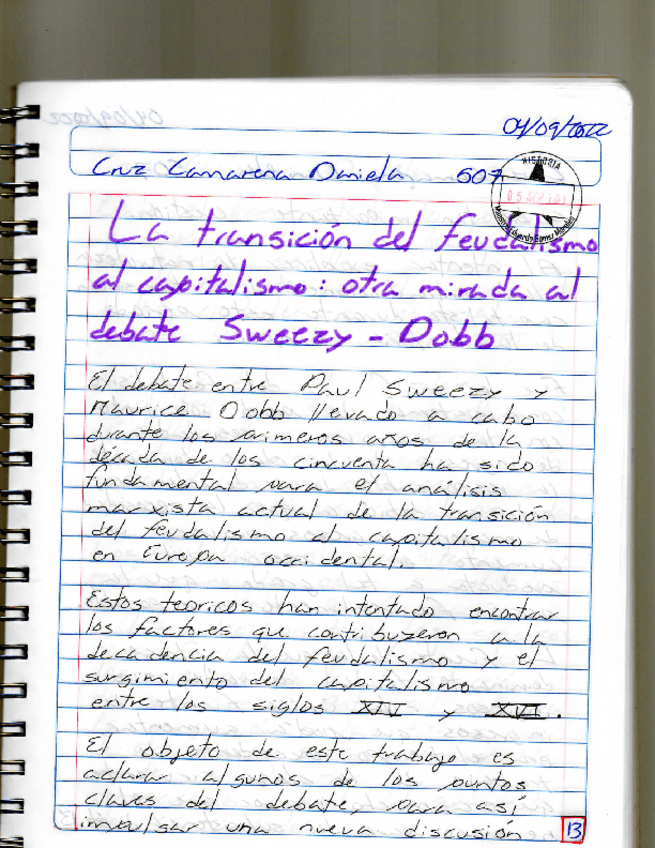 04/09/2022
Cruz Camarena Daniela 507
HISTORIA
La transición del feudalismo
al capitalismo: otra mirada al
debate Sweezy - Dobb
El debate entre Paul Sweezy y
Maurice Dobb llevado a cabo
durante los primeros años de la
década de los cincuenta ha sido
fundamental para el análisis
marxista actual de la transición
del feudalismo al capitalismo
en Europa occidental.
Estos teoricos han intentado encontrar
los factores que contribuyeron a la
decadencia del feudalismo y el
surgimiento del capitalismo
entre los siglos XIV y XVI.
El objeto de este trabajo es
aclarar algunos de los puntos
claves del debate, para así
impulsar una nueva discusión
13